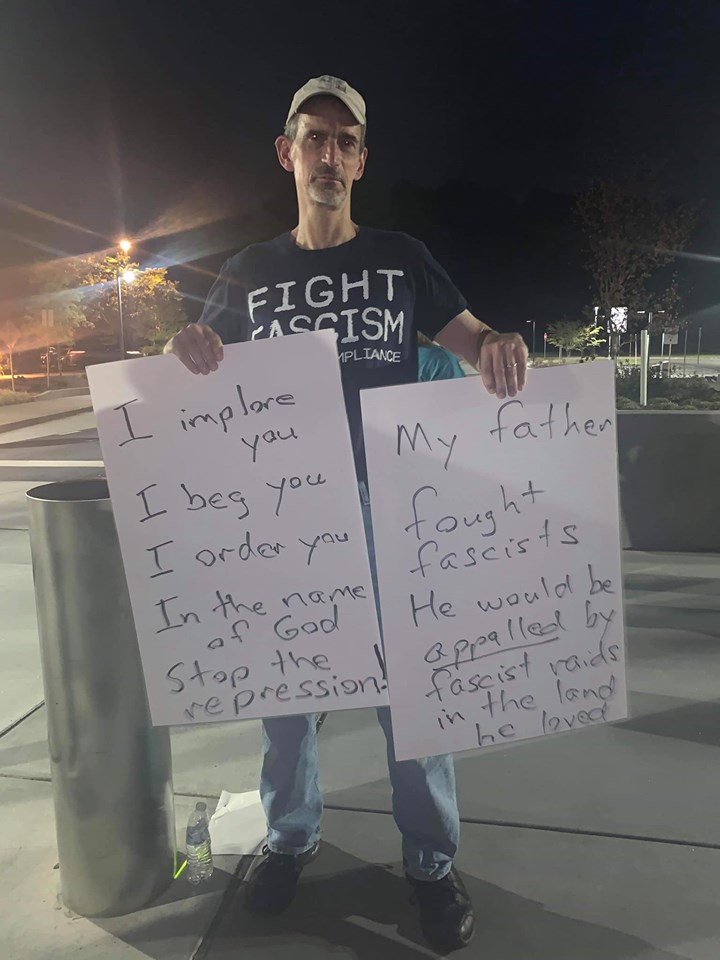 FIGHT
FASCISM
MPLIANCE
I implore
you
I beg you
I order you
In the name
of God
Stop the
repression!
My father
fought
fascists
He would be
appalled by
fascist raids
in the land
he loved